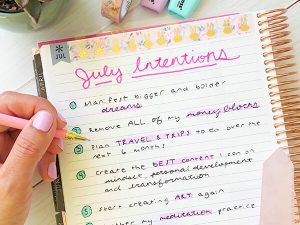 JUL
July Intentions
1 Manifest bigger and bolder
dreams
2 Remove ALL of my money blocks
3 Plan TRAVEL & TRIPS to do over the
next 6 months!
4 Create the BEST content I can on
mindset, personal development
and transformation
5 Start creating ART again
my meditation practice